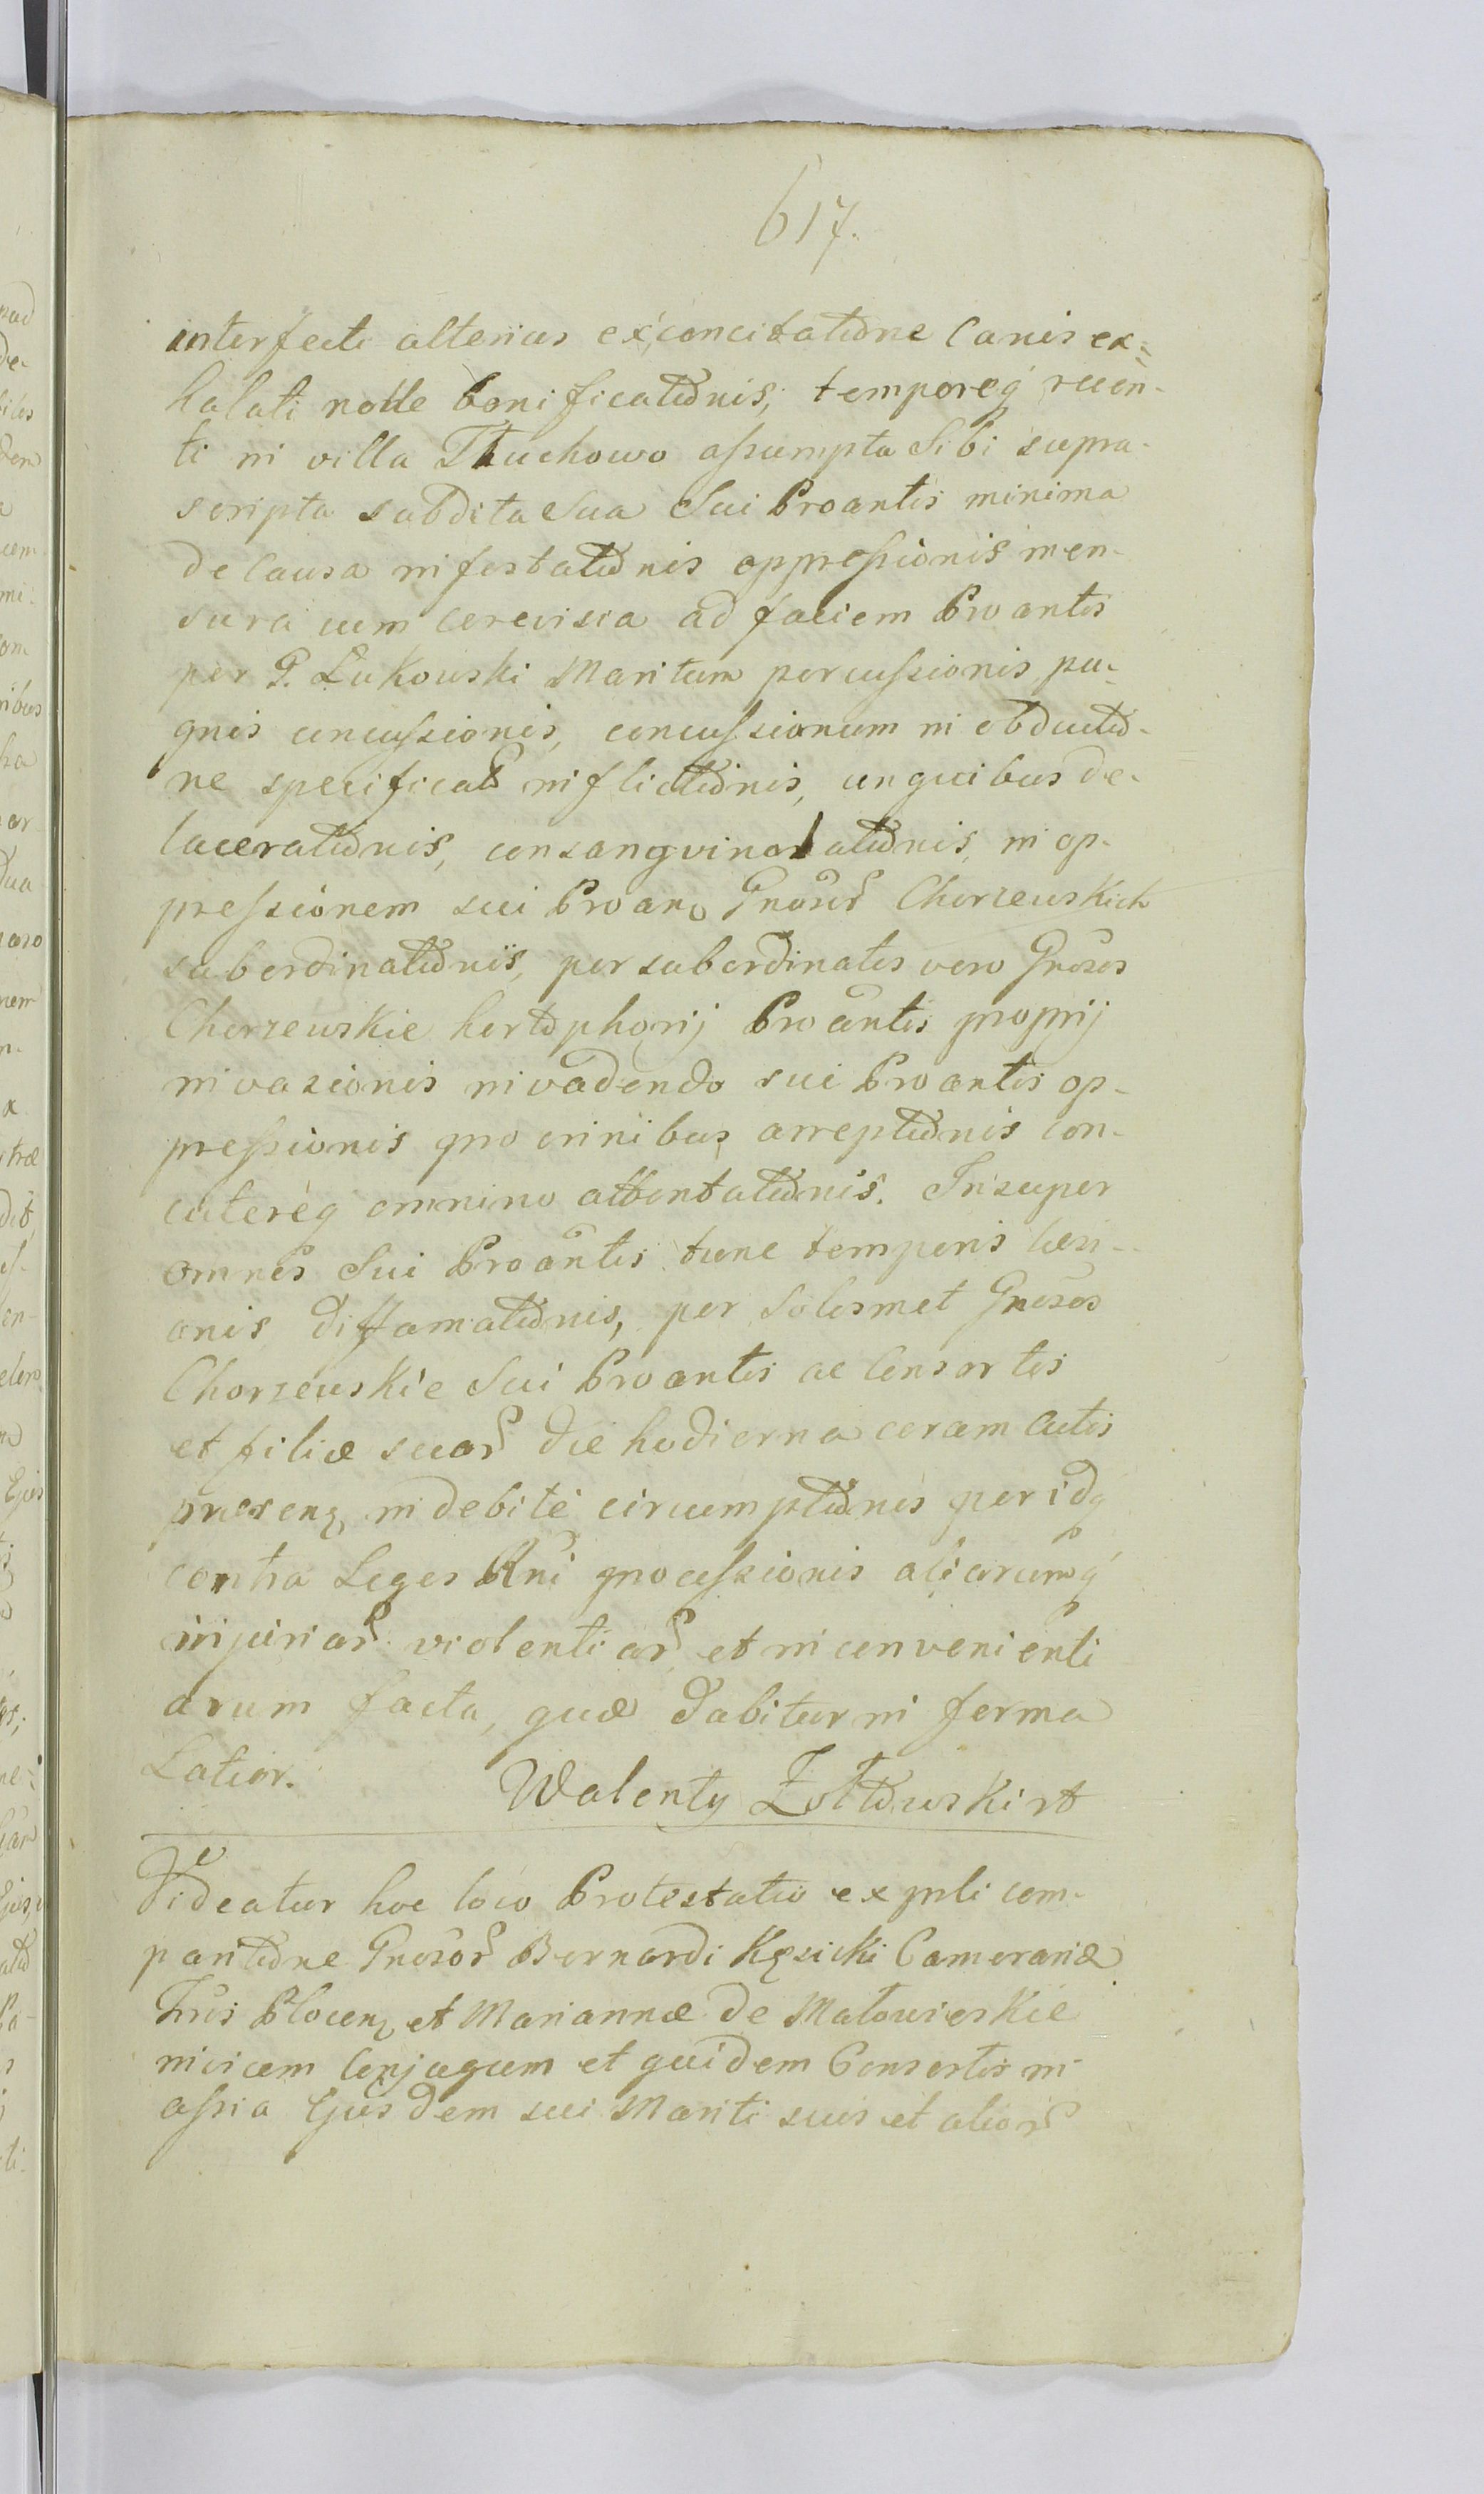 617.
interfecti alterius ex concitatione Canis ex=
halati nolle bonificationis, temporeq recen-
ti in villa Tłuchowo assumpta Sibi supra-
scripta subdita Sua Sui Proantis minima
de Causa infestationis oppressionis men-
sura cum Cerevisia ad faciem Proantis
per G. Lukowski Maritum percussionis, pu-
gnis concussionis, concussionum in obductio-
ne specificat inflictionis, unguibus de-
lacerationis, consangvinolationis, in op-
pressionem sui Proan Gnosor Chorzewskich
subordinationis, per subordinatos vero Gnosos
Chorzewskie hortophorij Proantis proprij
invasionis invadendo sui Proantis op-
pressionis pro crinibus arreptionis con-
cutereq omnino attentationis. Insuper
omnes Sui Proantis tunc temporis læsi-
onis diffamationis, per Solosmet Gnosos
Chorzewskie Sui Proantis ac Consortis
et filiæ suar die hodierna coram Actis
præsen indebite circumptionis per idq
contra Leges Rni processionis aliarumq
injuriar violentiar et inconvenienti
arum facta, quæ dabitur in forma
Latior.
Walenty Żołtowski rt
Videatur hoc loco Protestatio ex pnli com-
paritione Gnosor Bernardi Kęsicki Camerariæ
Trris Plocen et Mariannæ de Małowieskie
invicem Conjugum et quidem Consortis in
assia Ejusdem sui Mariti suis et alior